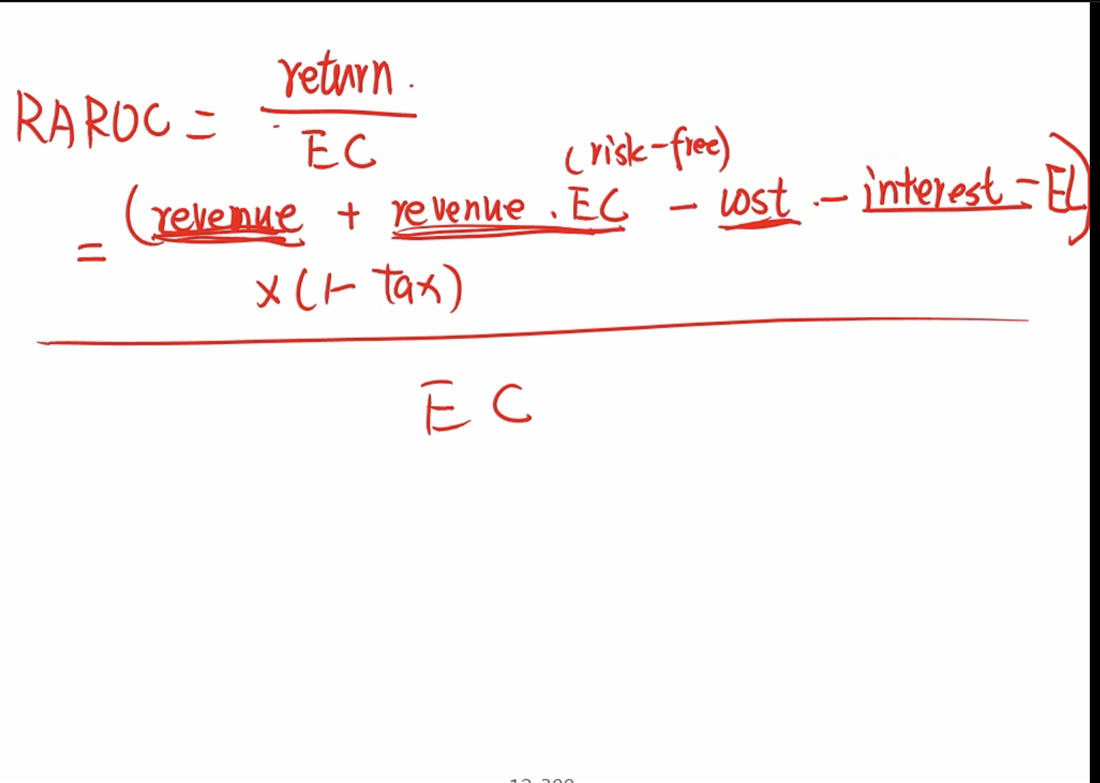 RAROC = return
EC
(risk-free)
= (revenue + revenue . EC - cost - interest - EL)
x (1- tax)
EC